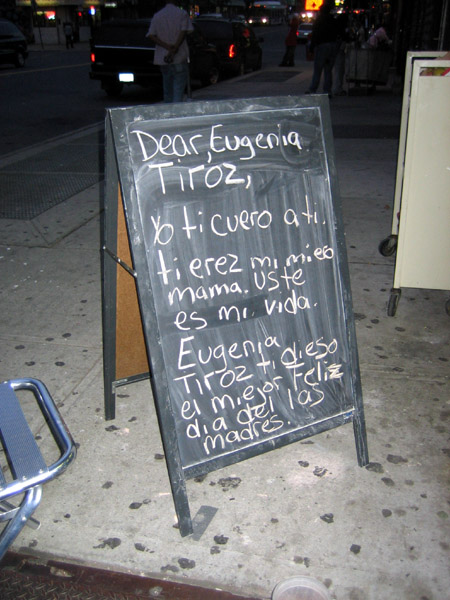 Dear, Eugenia
Tiroz,
Yo ti cuero a ti.
ti erez mi mieo
mama. uste
es mi vida.
Eugenia
Tiroz ti dieso
el miejor feliz
dia del las
madres.